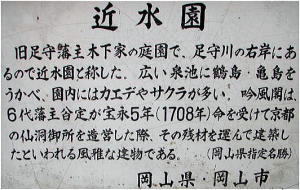 近水園
旧足守藩主木下家の庭園で、足守川の右岸にあ
るので近水園と称した。広い泉池に鶴島・亀島を
うかべ、園内にはカエデやサクラが多い。吟風閣は、
6代藩主㒶定が宝永5年(1708年)命を受けて京都
の仙洞御所を造営した際、その残材を運んで建築し
たといわれる風雅な建物である。(岡山県指定名勝)
岡山県・岡山市